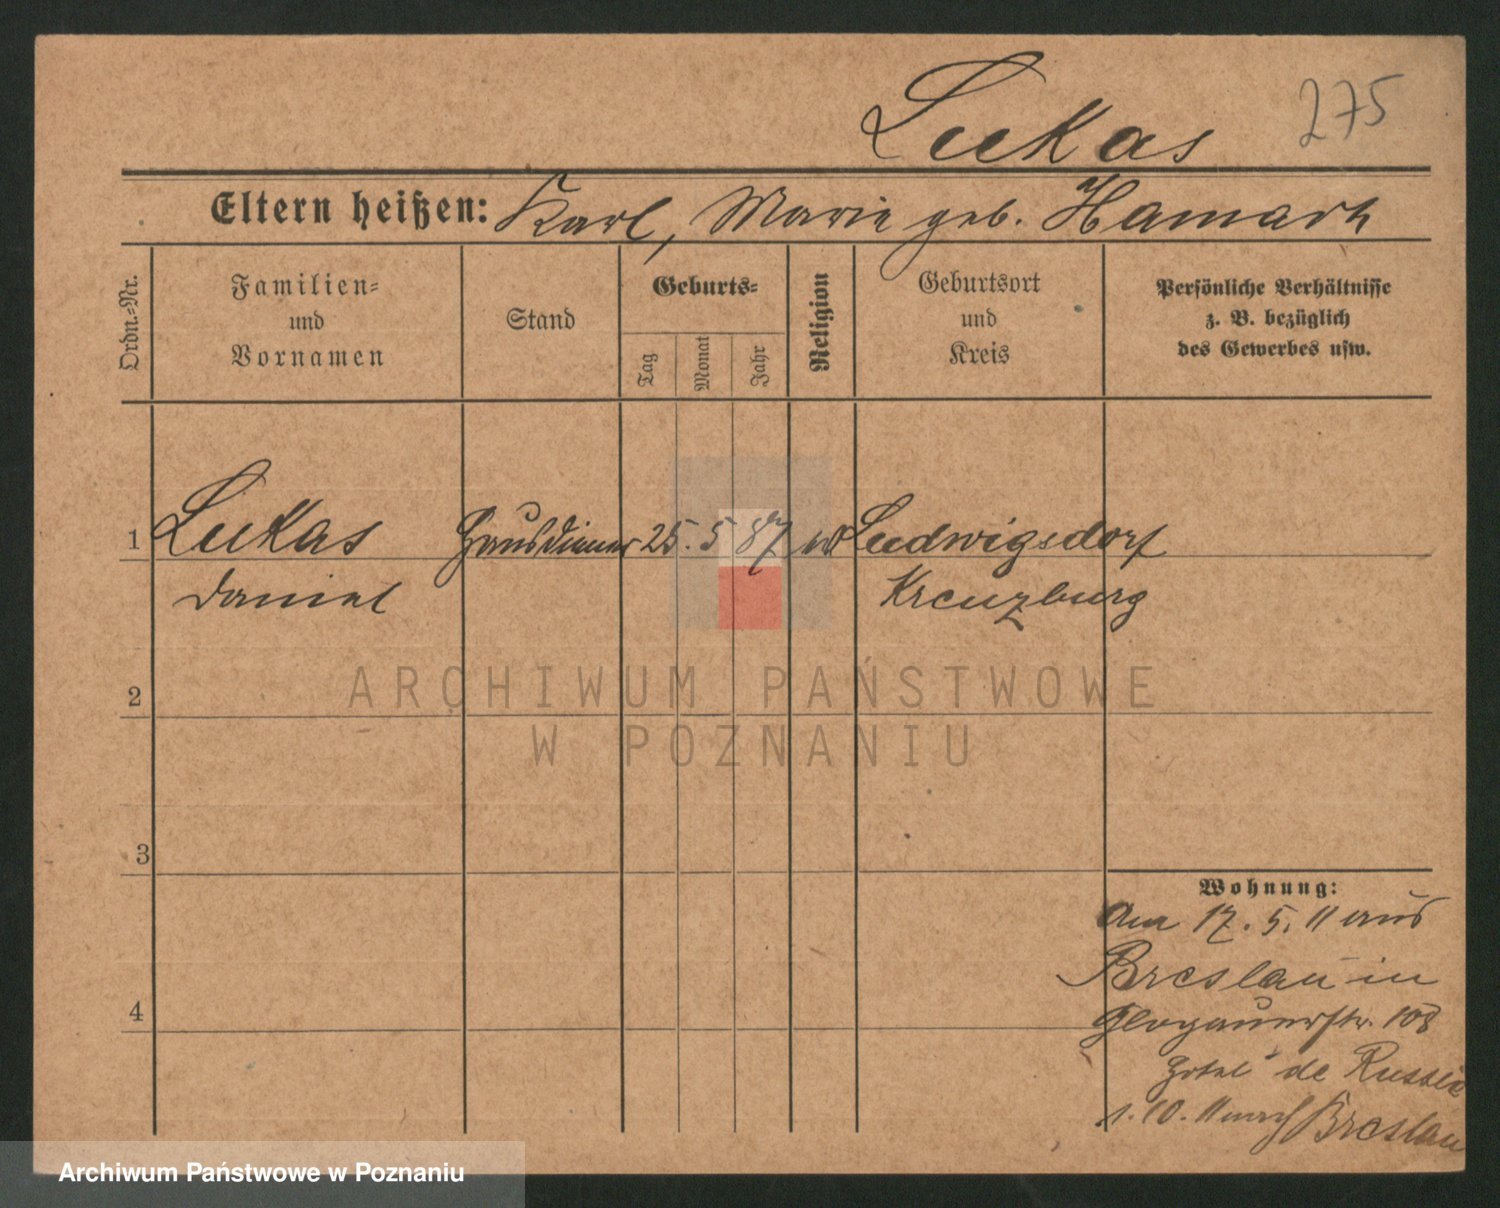 Lukas 275
Eltern heißen: Karl, Marie geb. Hamarh
Ordn.-Nr.
Familien-
und
Vornamen
Stand
Geburts-
Tag
Monat
Jahr
Religion
Geburtsort
und
Kreis
Persönliche Verhältnisse
z. B. bezüglich
des Gewerbes usw.
1 Lukas Hausdiener 25. 5 87 Ludwigsdorf
Daniel Kreuzburg
2
ARCHIWUM PAŃSTWOWE
W POZNANIU
3
Wohnung:
Am 17. 5. 11 aus
Breslau in
4
Glogauerstr. 108
Hotel de Russie
1. 10. 11 nach Breslau
Archiwum Państwowe w Poznaniu